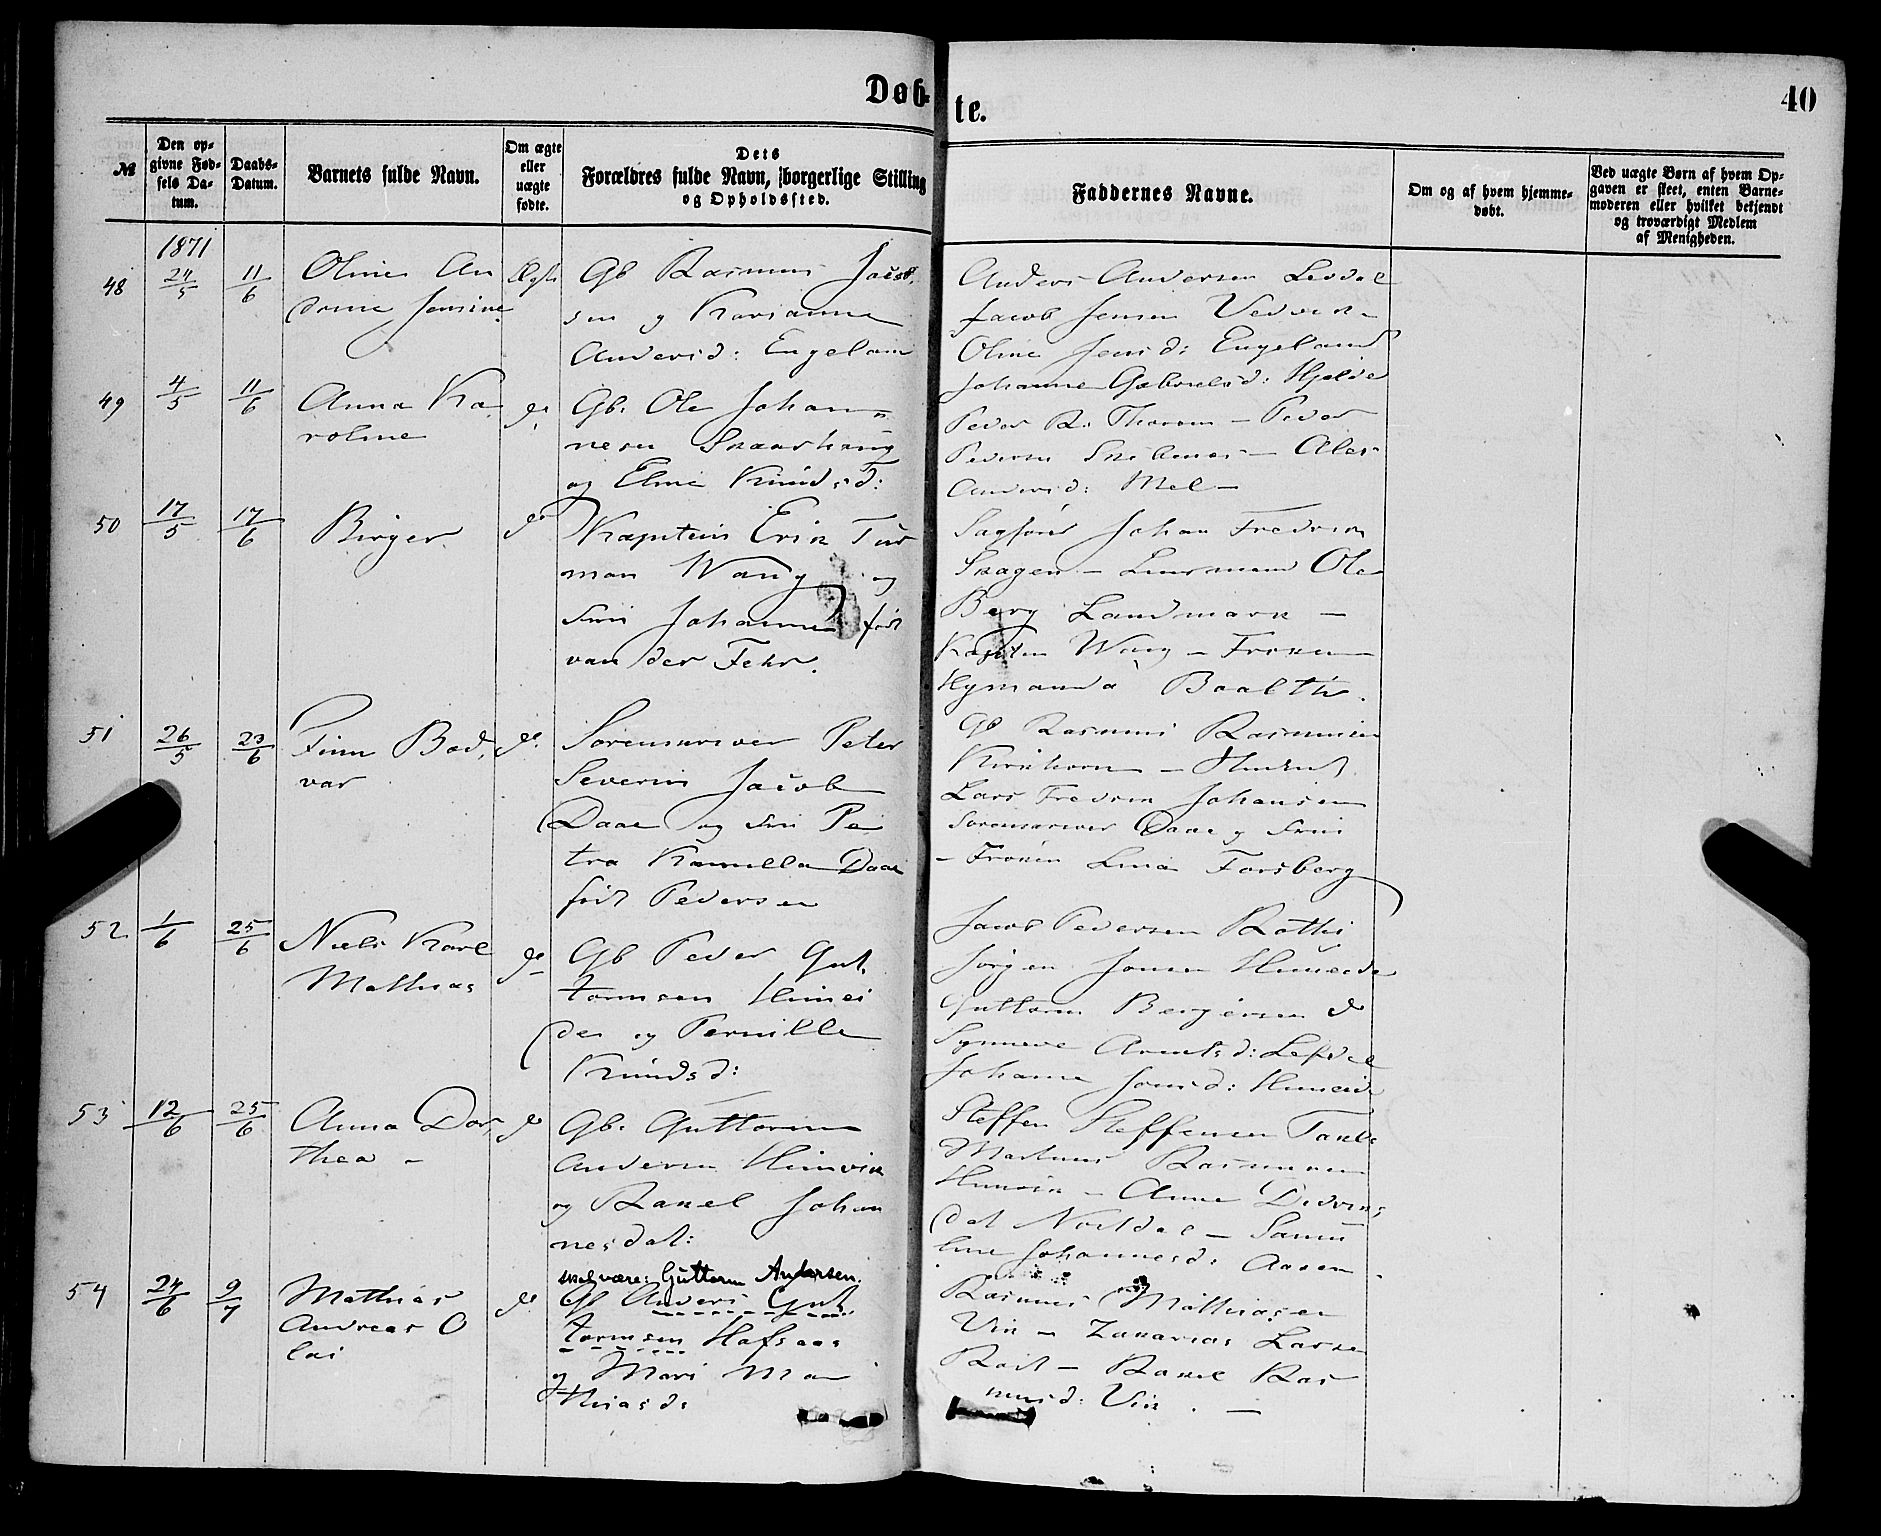 Døb-
te.
40
№
Den op-
givne Fød-
sels Da-
tum.
Daabs-
Datum.
Barnets fulde Navn.
Om ægte
eller
uægte
fødte.
Dets
Forældres fulde Navn, borgerlige Stilling
og Opholdssted.
Faddernes Navne.
Om og af hvem hjemme-
døbt.
Ved uægte Børn af hvem Op-
gaven er skeet, enten Barne-
moderen eller hvilket bekjendt
og troværdigt Medlem
af Menigheden.
1871
48 24/5 11/6 Oline An
drine Jensine
Ægte
Gb Rasmus Jacob,
sen og Karianne
Andersd: Engeland
Anders Andersen Levdal
Jacob Jensen Vedvik
Oline Jensd: Engeland
Johanne Gabrielsd: Hjelde
49 4/5 11/6 Anna Ka
roline
do
Gb. Ole Johan
nesen Skaarhaug
og Eline Knudsd:
Peder R. Thoresen – Peder
Pedersen
Andersd: Mel –
50 17/5 17/6 Birger
do
Kapitein Erik Tur
man Wang og
Frue Johanne født
van der Fehr.
Sagfører Johan Fredrik
Skagen – Lensmand Ole
Berg Landmark –
Kaptein Wang – Frøken
Baalth
51 26/5 23/6 Finn Bød,
var
do
Sorenskriver Peter
Severin Jacob
Daae og Frue Pe
tra Kamilla Daae
født Pedersen
Gb Rasmus Rasmussen
Kirkhorn –
Lars Fredrik Johansen
Sorenskriver Daae og Frue
– Frøken Lina Forsberg
52 1/6 25/6 Niels Karl
Mathias
do
Gb Peder Gut,
tormsen Humei
de og Pernille
Knudsd:
Jacob Pedersen
Jørgen Jonsen Humeide
Guttorm Børgersen do
Synneve Arentsd: Lefdal
Johanne Jonsd: Humeide
53 12/6 25/6 Anna Dor,
thea –
do
Gb. Guttorm
Andersen Hunvik
og Rakel Johan
nesdat:
Steffen Steffensen Takle
Martinus Rasmussen
Hunvik – Anne Didrik,
dat Nordal –
line Johannesd: Aasen
54 24/6 9/7 Mathias
Andreas O
lai
do
skal være: Guttorm Andersen.
Gb Anders Gut
tormsen Hafsaas
og Mari Ma
thiasd:
Rasmus Mathiasen
Vik – Zakarias Larsen
– Rakel Ras
musd: Vik. –